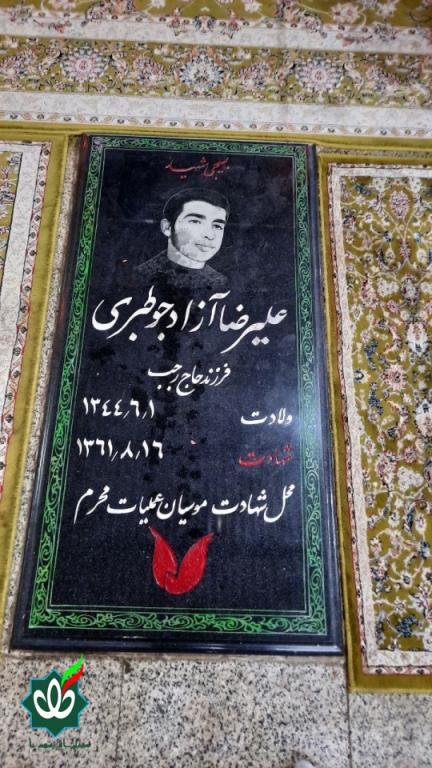 بسیجی شهید
علیرضا آزادجو طبری
فرزند حاج رجب
ولادت ۱۳۴۴٫۶٫۱
شهادت ۱۳۶۱٫۸٫۱۶
محل شهادت موسیان عملیات محرم